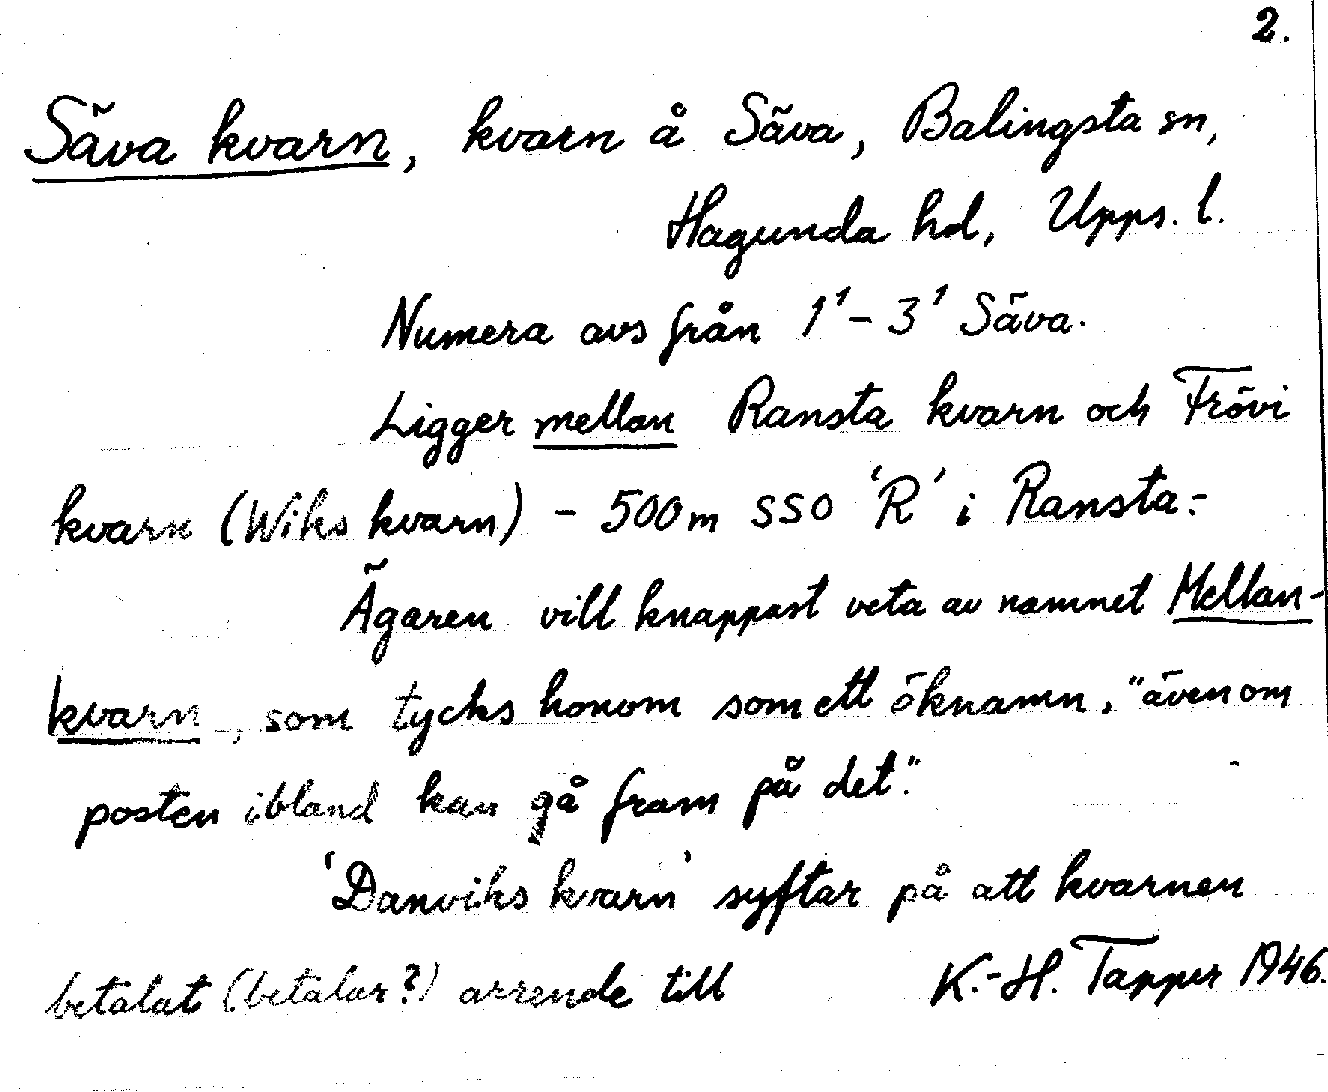 2.
Säva kvarn, kvarn å Säva, Balingsta sn,
Hagunda hd, Upps. l.
Numera avs från 1' - 3' Säva.
Ligger mellan Ransta kvarn och Frövi
kvarn (Wiks kvarn) - 500m SSO 'R' i Ransta:-
Ägaren vill knappast veta av namnet Mellan-
kvarn, som tycks honom som ett öknamn, "även om
posten ibland kan gå fram på det".
'Danviks kvarn' syftar på att kvarnen
betalat (betalar?) arrende till K.-H. Tapper 1946.